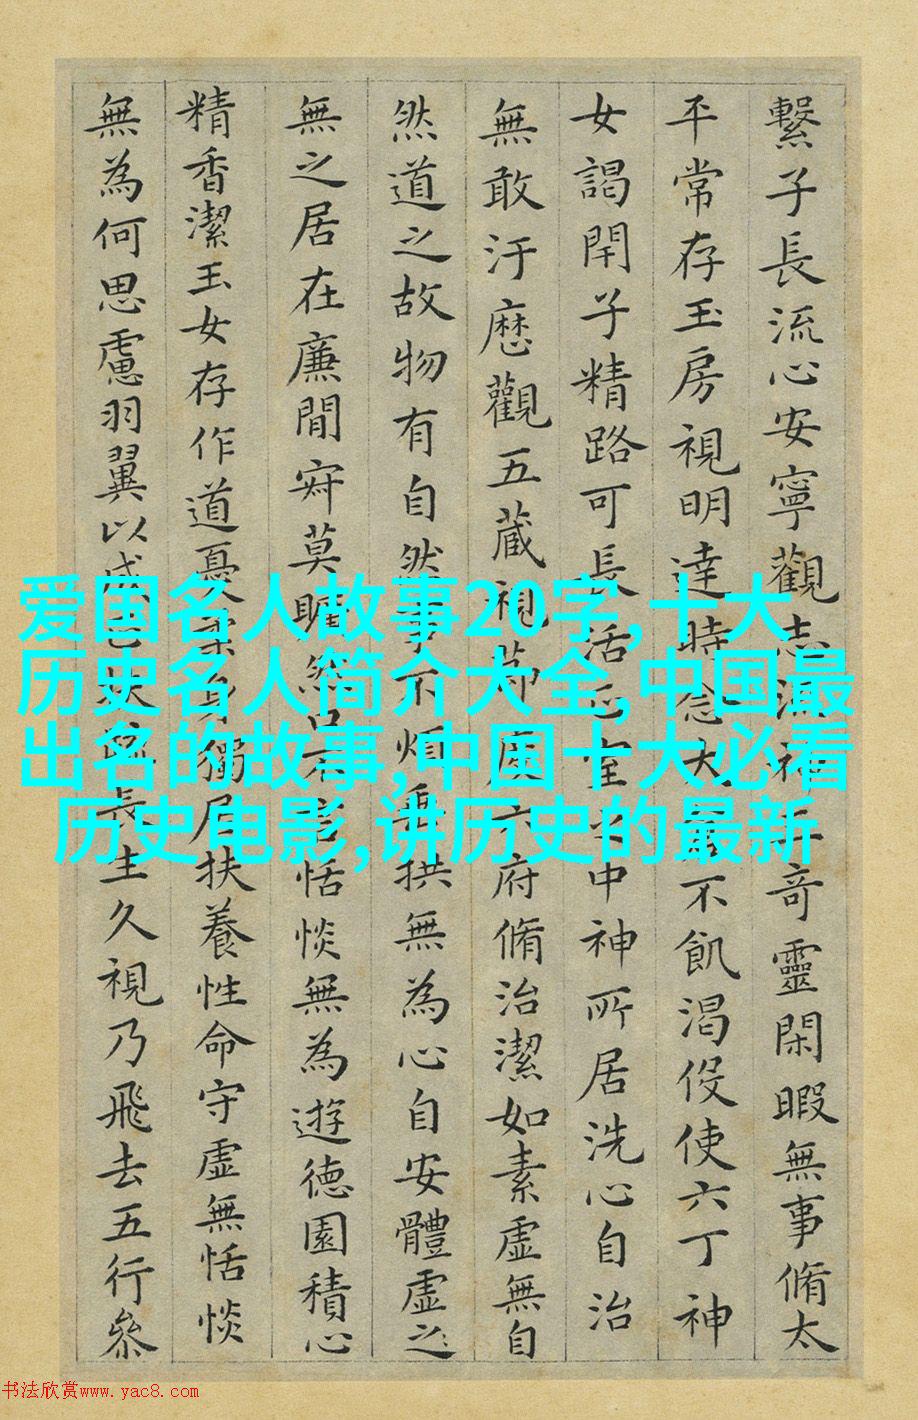 繫子長流心安寧觀志流神三奇靈閑暇無事脩太
平常存玉房視明達時念大倉不飢渴伇使六丁神
女謁閇子精路可長活正室之中神所居洗心自治
無敢汙歷觀五藏視節度六府脩治潔如素虛無自
然道之故物有自然事不煩垂拱無為心自安體虛之
無之居在廉間寂莫曠然口不言恬惔無為遊德園積心
精香潔玉女存作道憂柔身獨居扶養性命守虛無恬惔
無為何思慮羽翼以成正扶疏長生久視乃飛去五行參
爱国名人故事20字,十大
历史名人简介大全,中国最
出名的故事,中国十大必看
历史电影,讲历史的最新
书法欣赏www.yac8.com